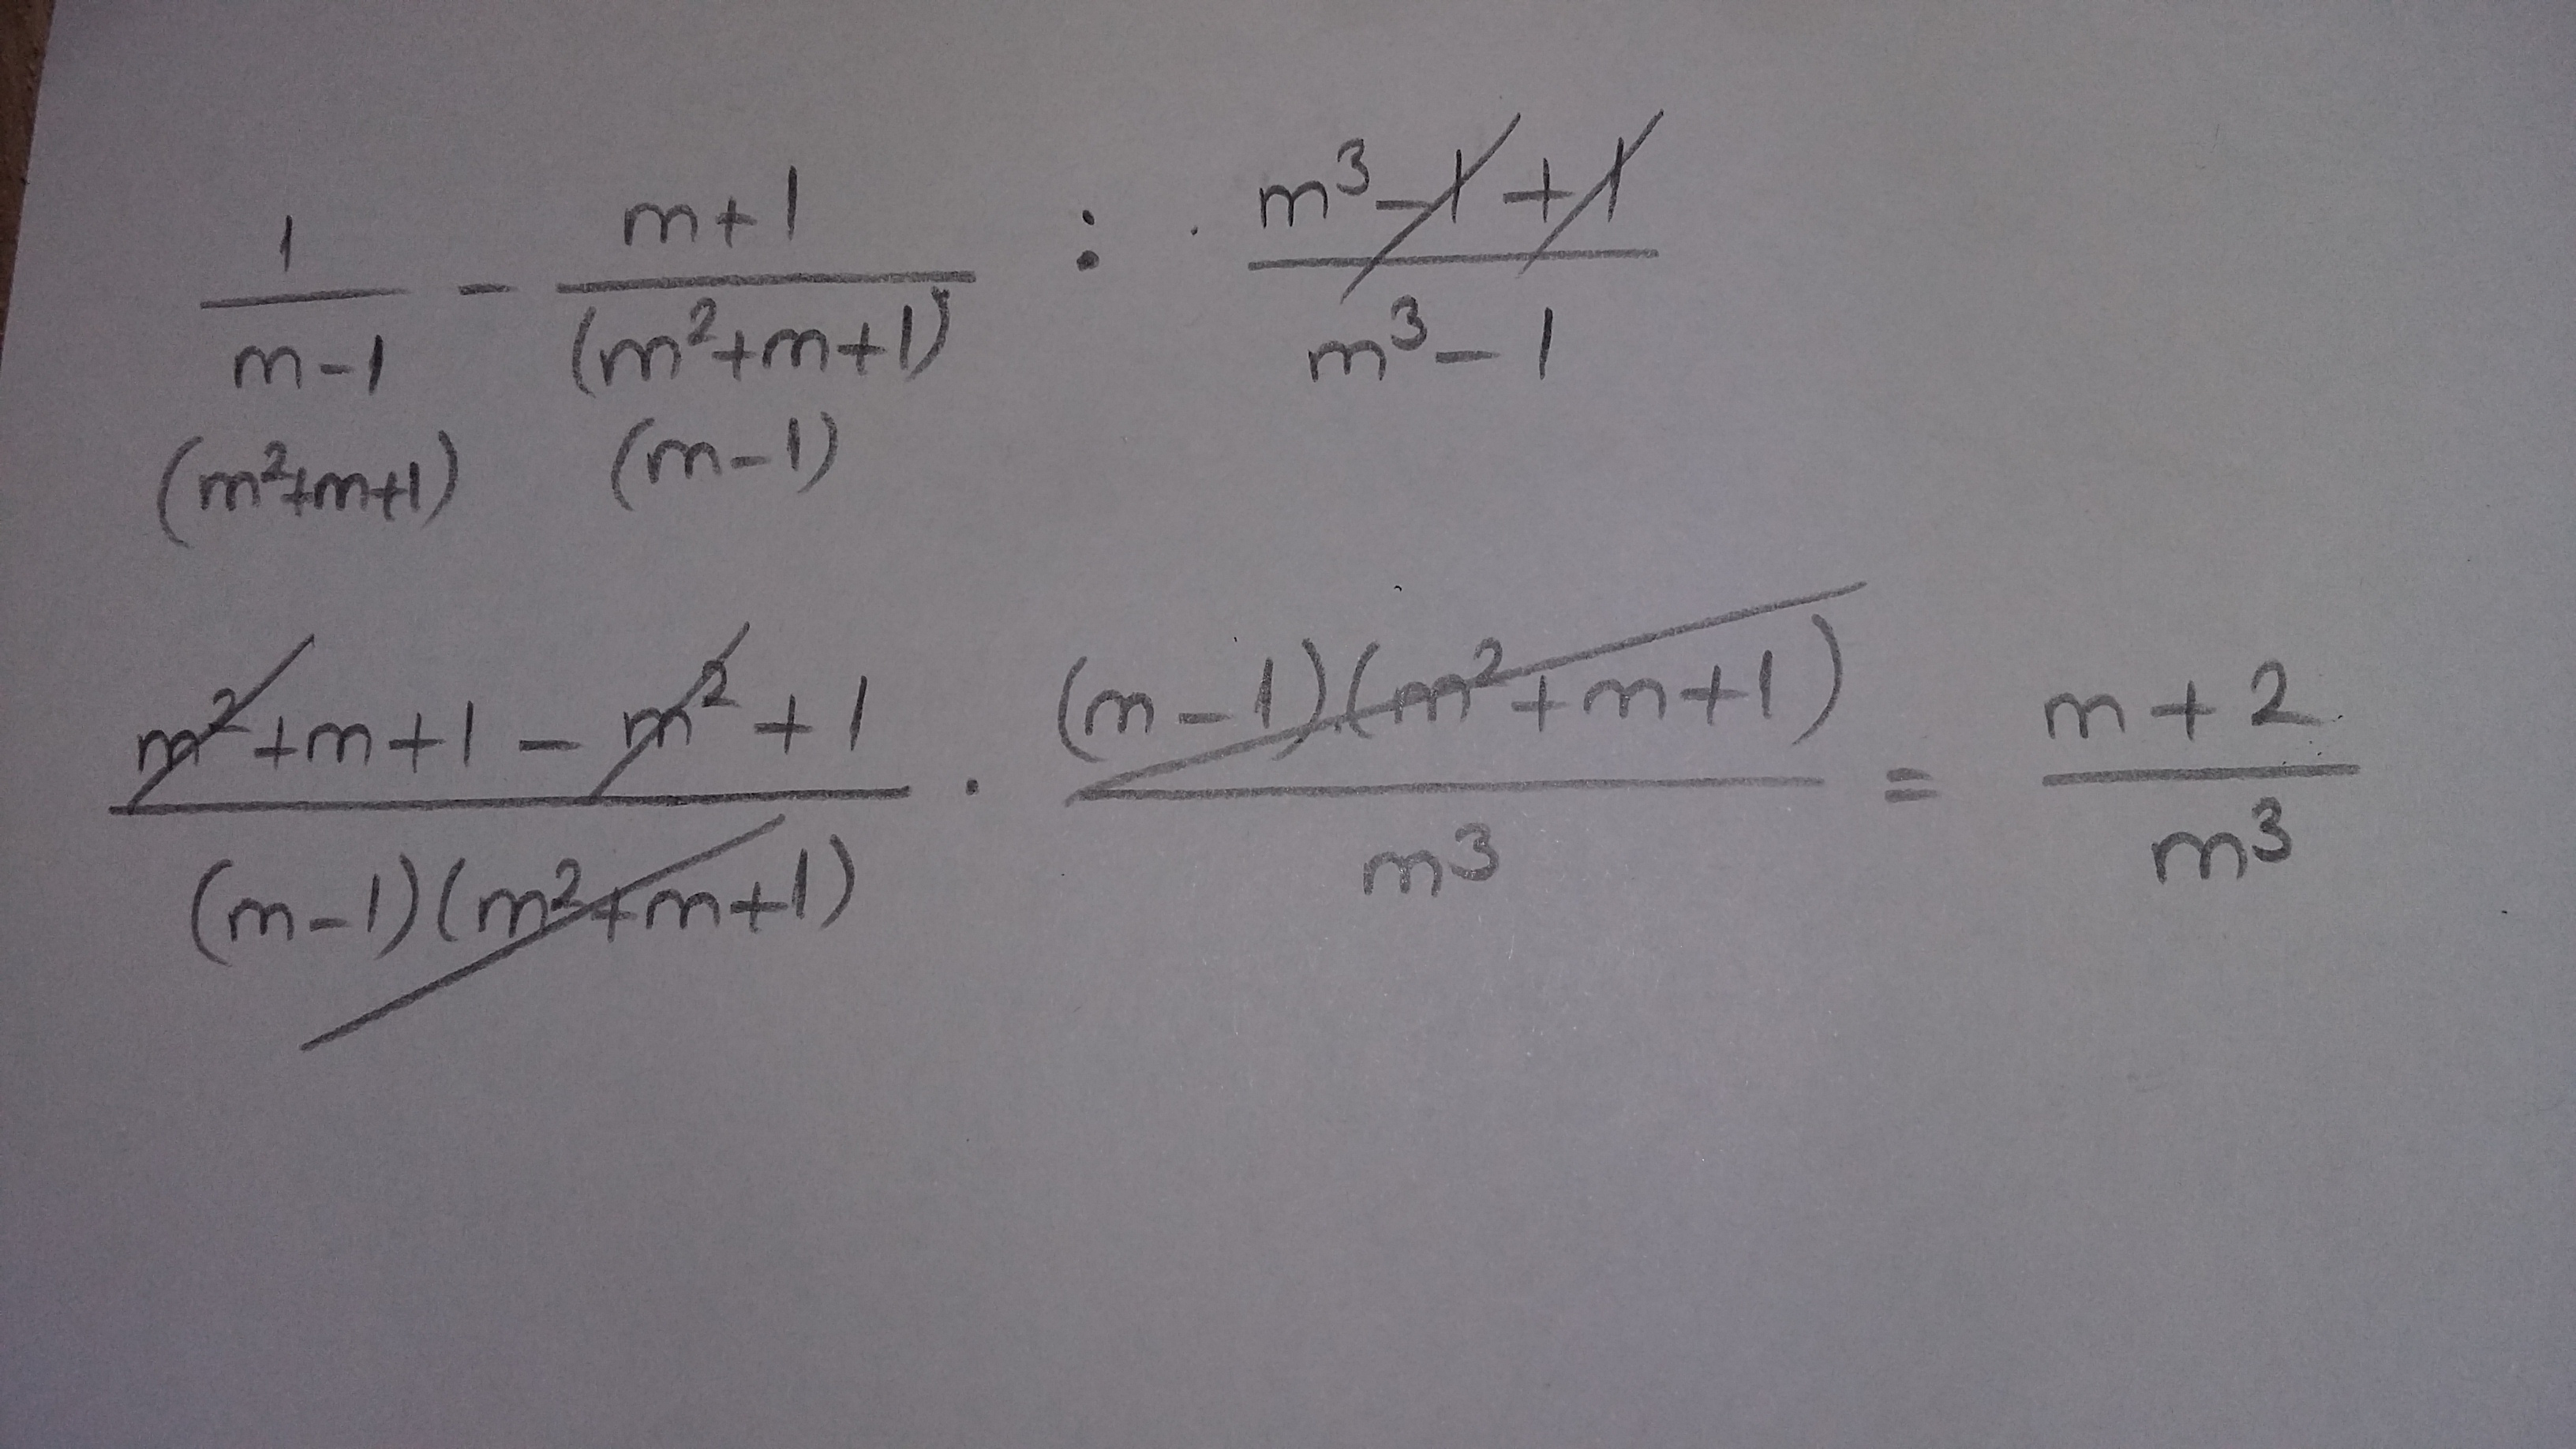 1/(m-1) - (m+1)/(m²+m+1) : (m³-1+1)/(m³-1)
(m²+m+1) (m-1)
(m²+m+1-m²+1)/((m-1)(m²+m+1)) · ((m-1)(m²+m+1))/m³ = (m+2)/m³